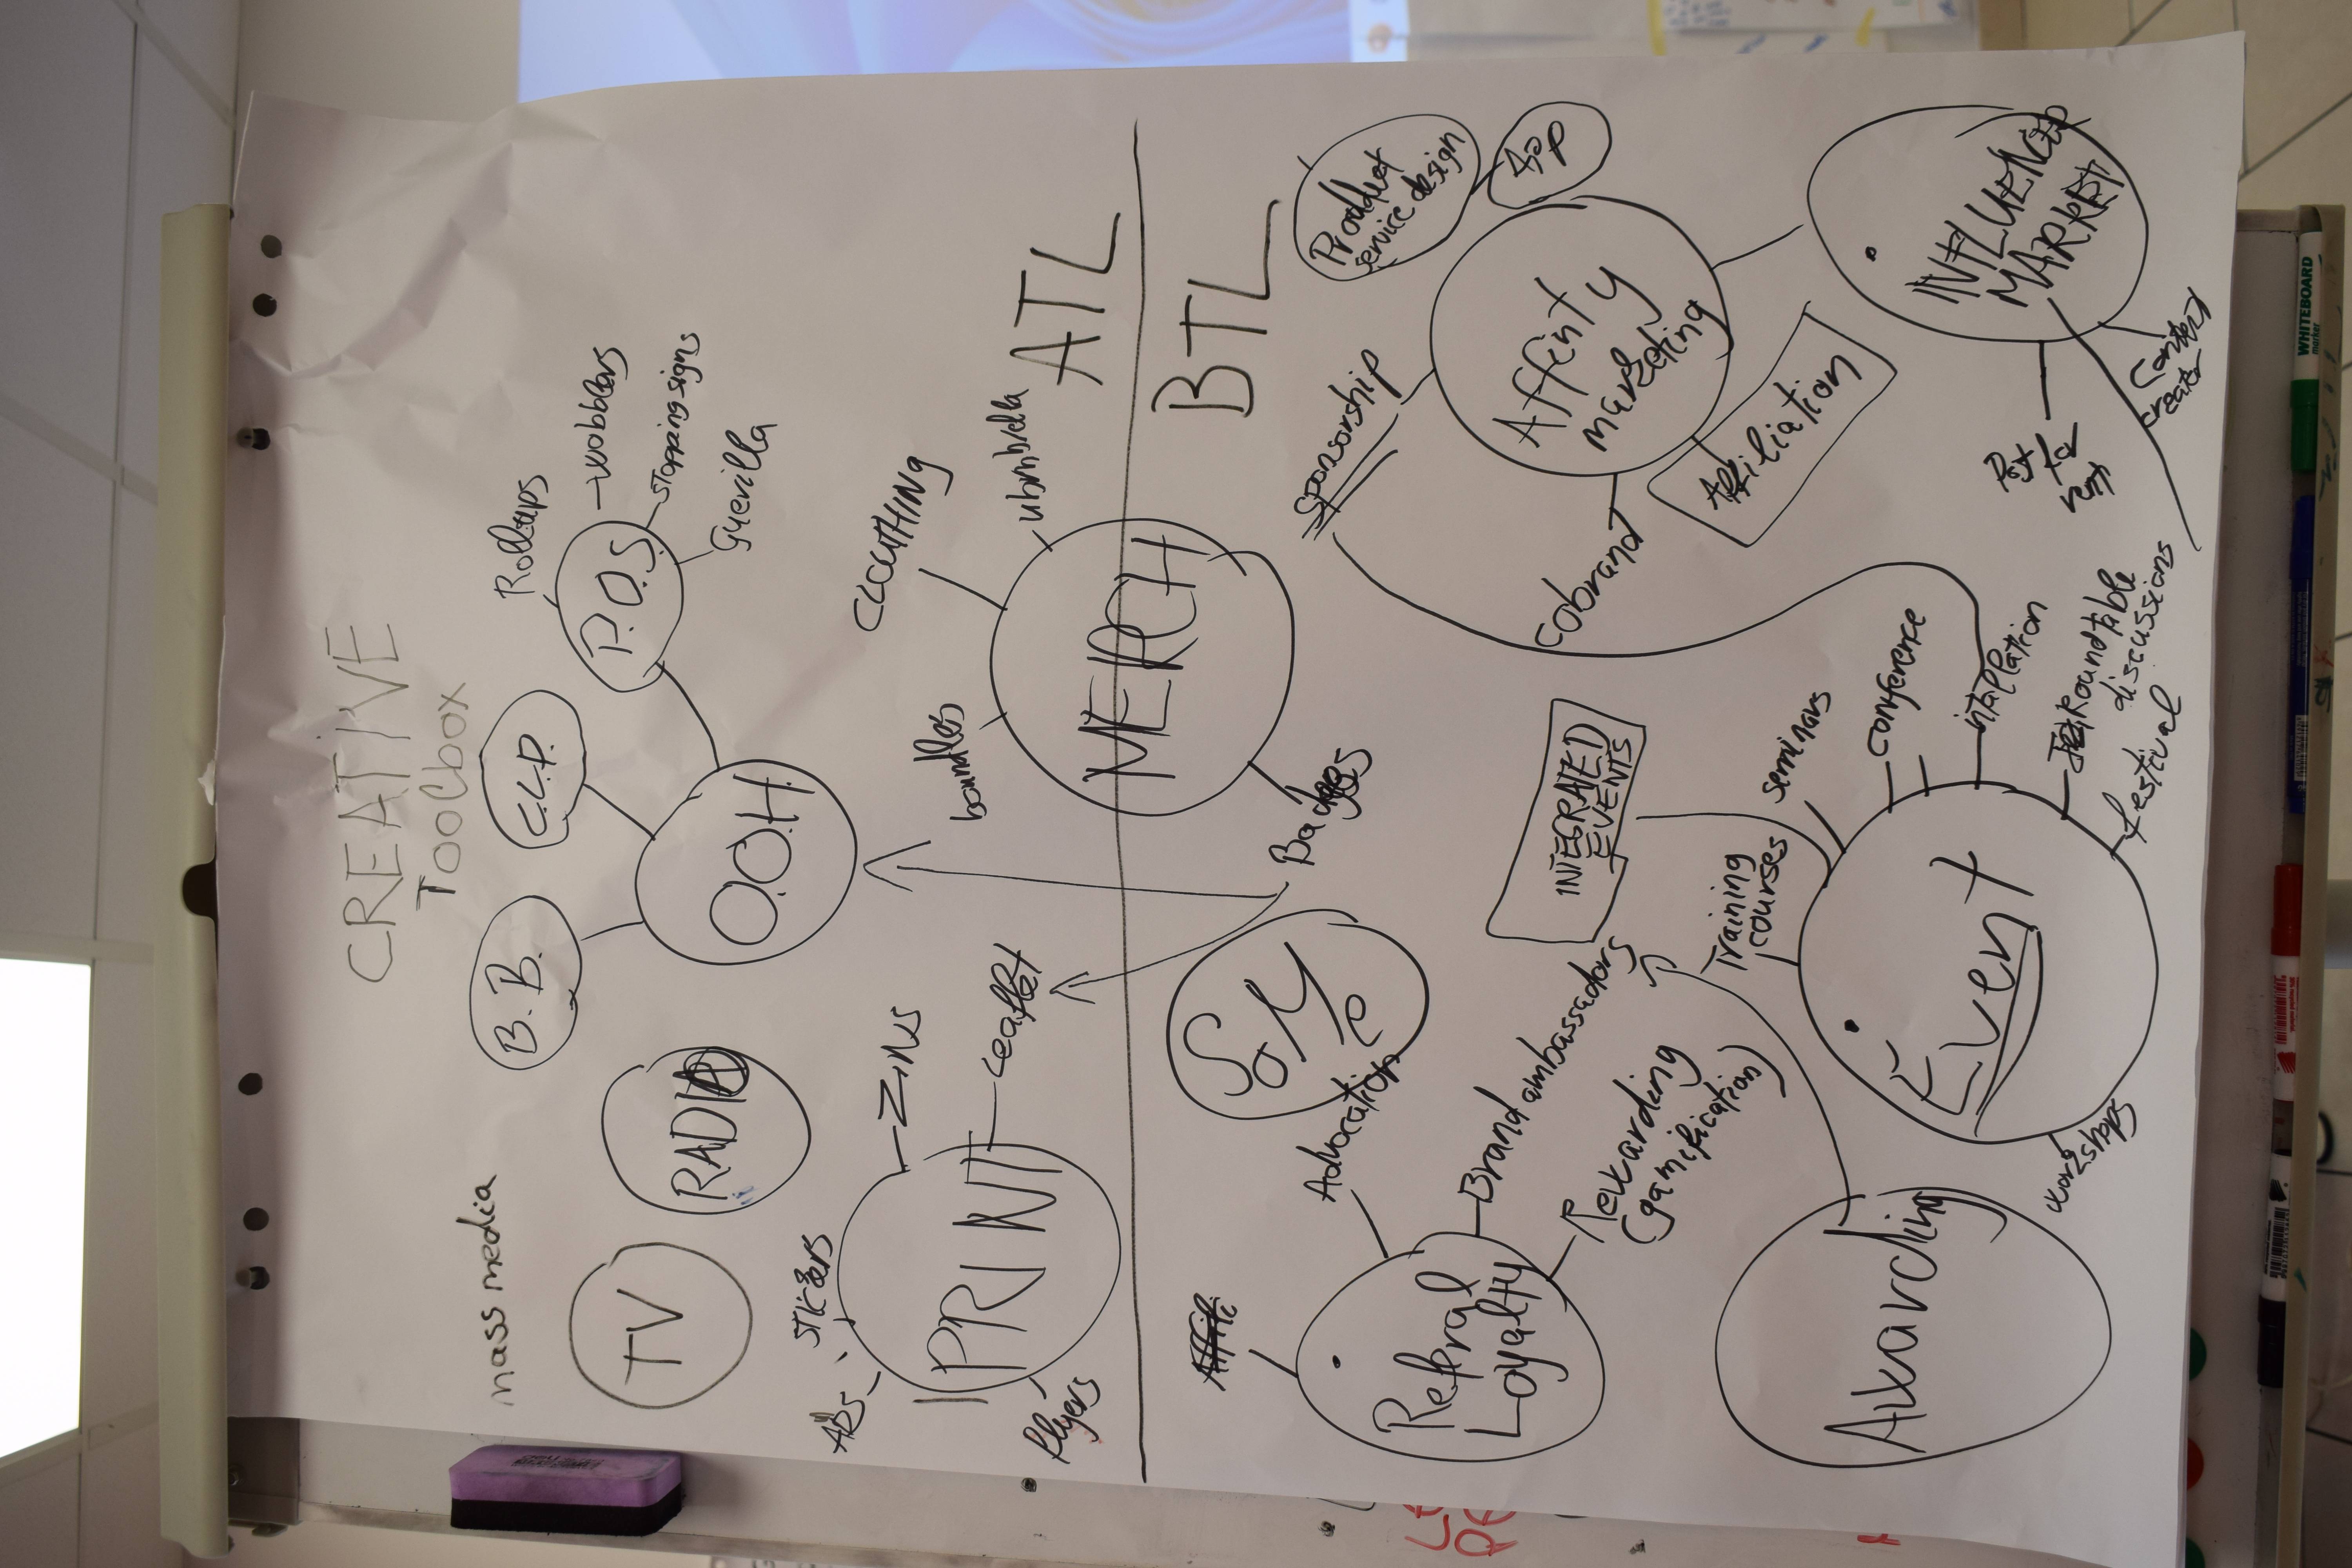 CREATIVE
TOOLbox
mass media
B.B.
C.L.P.
Rollups
P.O.S.
wobblers
stopping signs
Guerilla
TV
RADIO
O.O.H.
ADS
stickers
ZINS
CLOUTHING
PRINT
Leaflet
boundles
umbrella
Flyers
MERCH
ATL
BTL
Badges
SoMe
Advocation
Sponsorship
Product
service design
App
Referal
Loyalty
Brand ambassadors
Rewarding
(gamification)
INTEGRATED
EVENTS
Cobrand
Affinty
marketing
Affiliation
Training
courses
seminars
conference
Awarding
Event
intallation
Roundtable
discussions
festival
workshops
INFLUENCER
MARKET
Post
for
rent
Content
creator
WHITEBOARD
marker